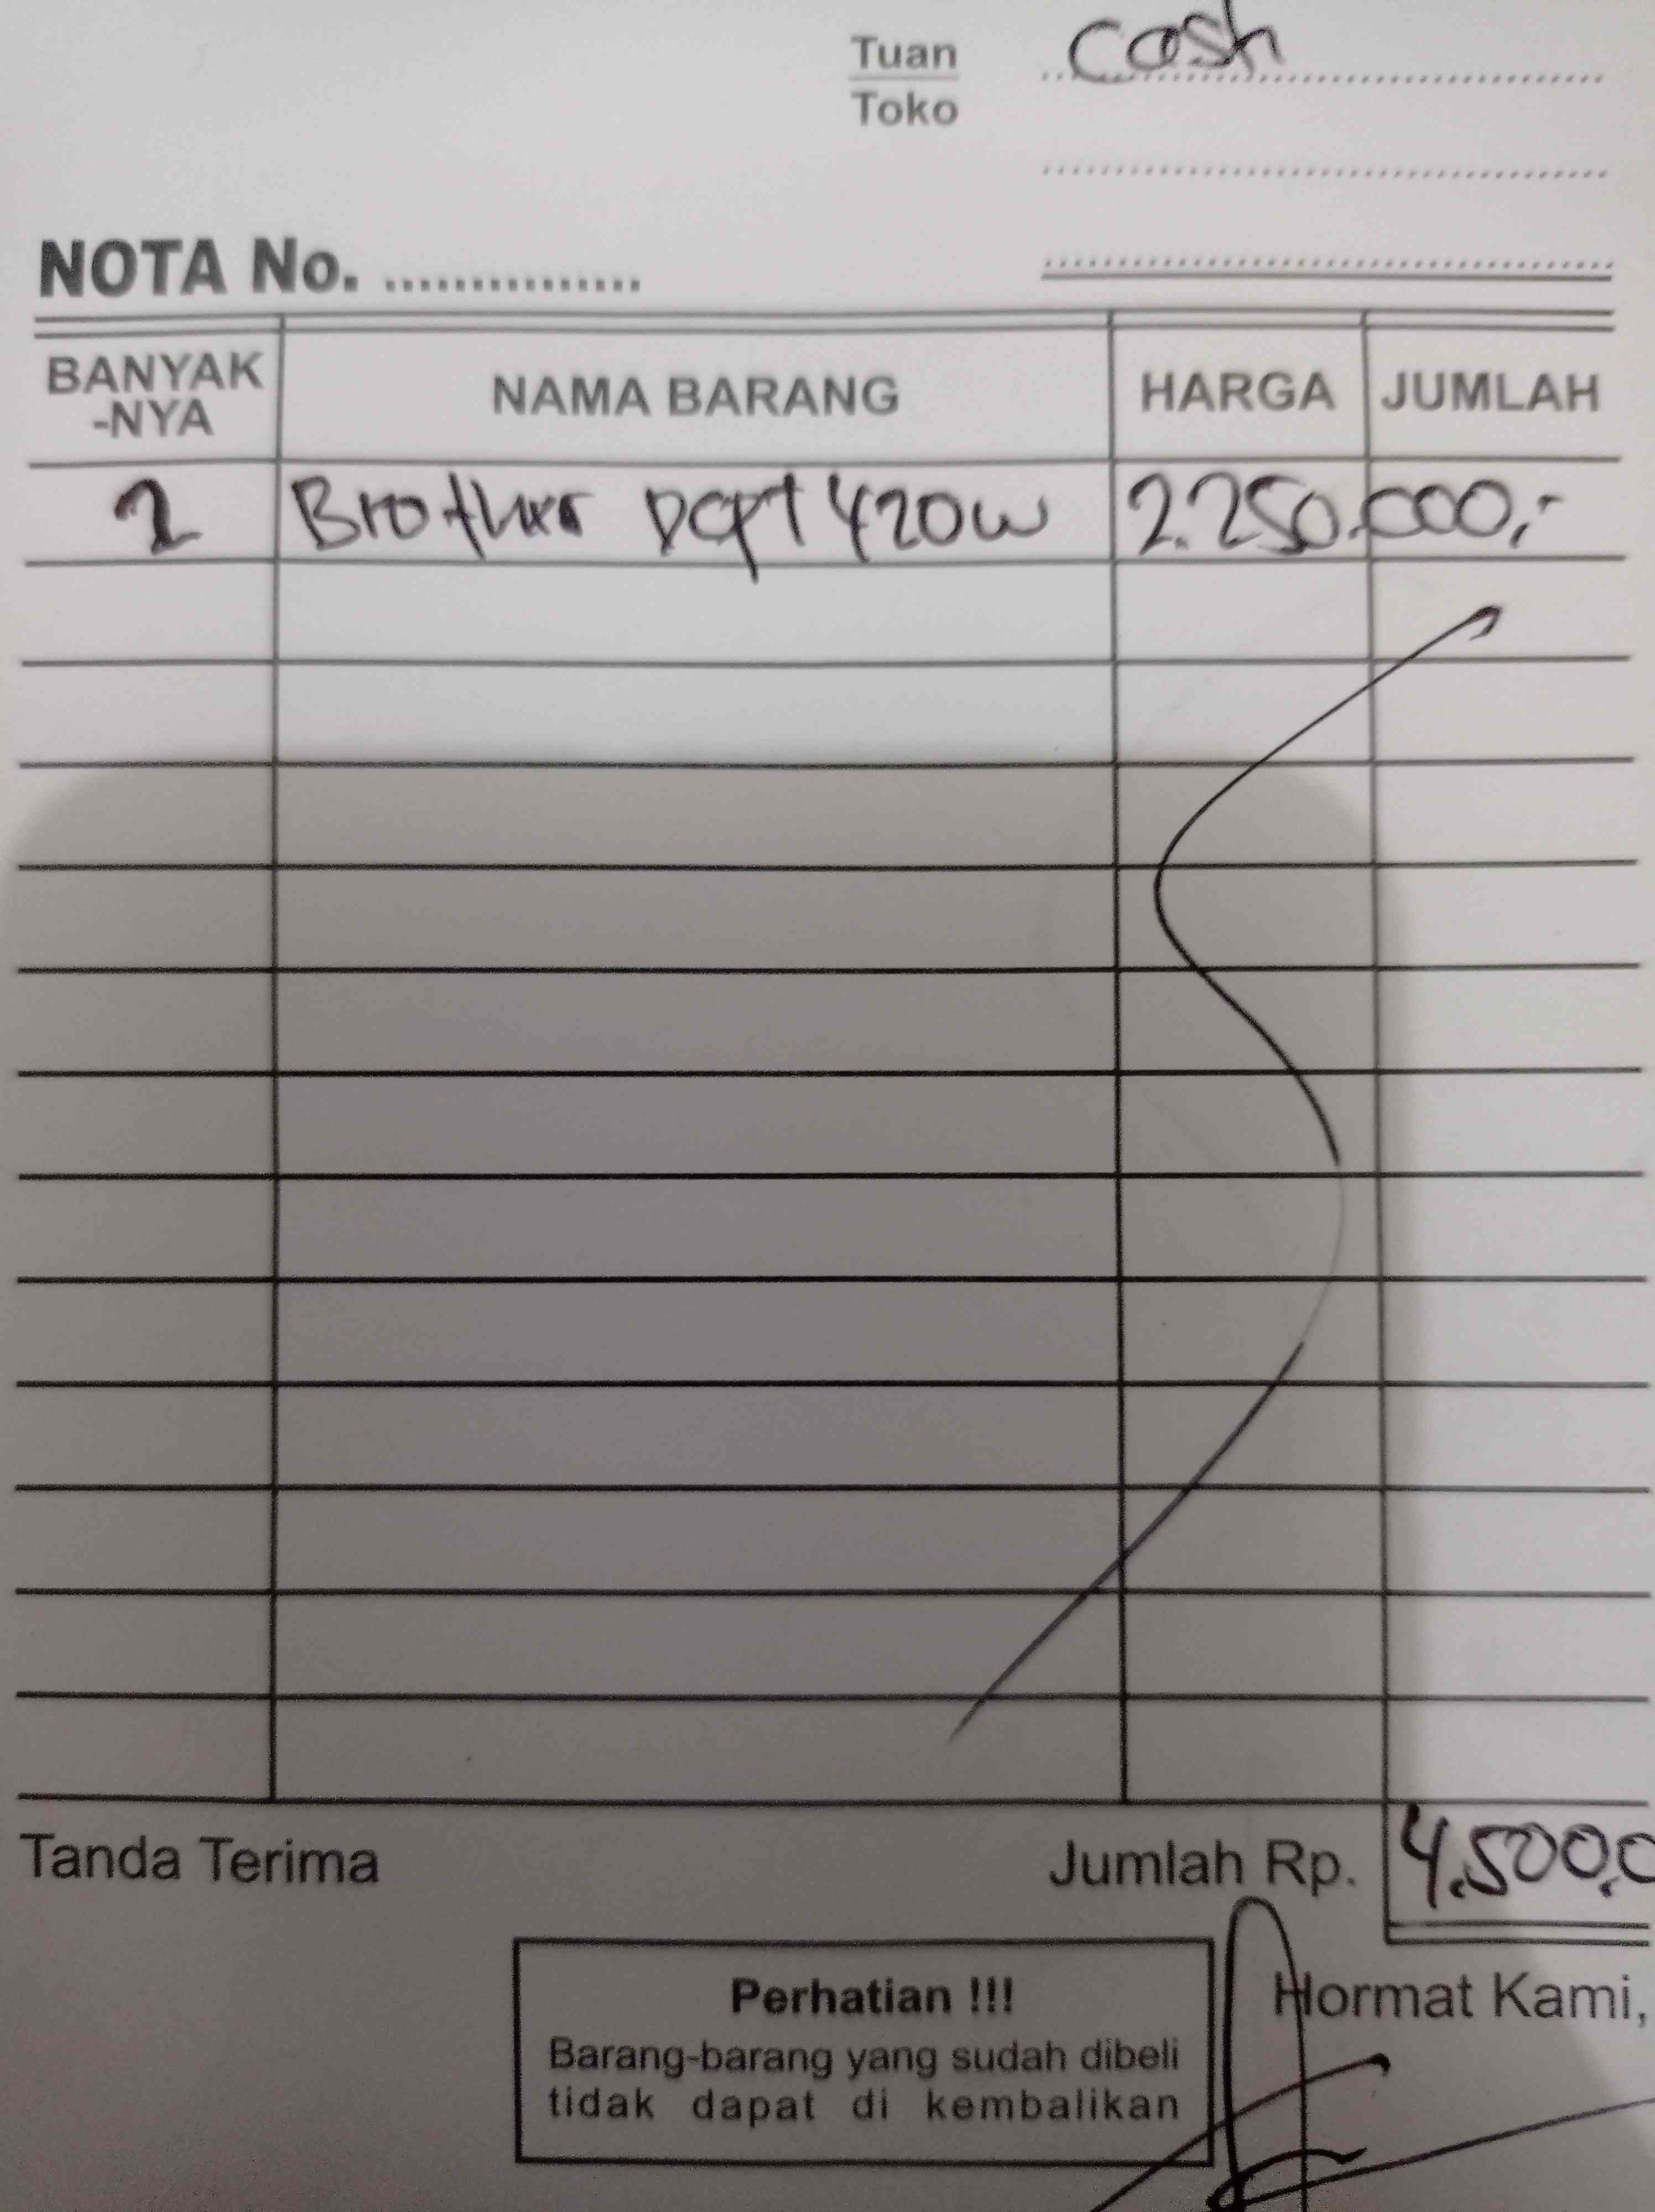 Tuan Cash
Toko
NOTA No. ...............
BANYAK -NYA NAMA BARANG HARGA JUMLAH
2 Brother DCPT420W 2.250.000,-
Tanda Terima Jumlah Rp. 4.500.0
Hormat Kami,
Perhatian !!!
Barang-barang yang sudah dibeli
tidak dapat di kembalikan